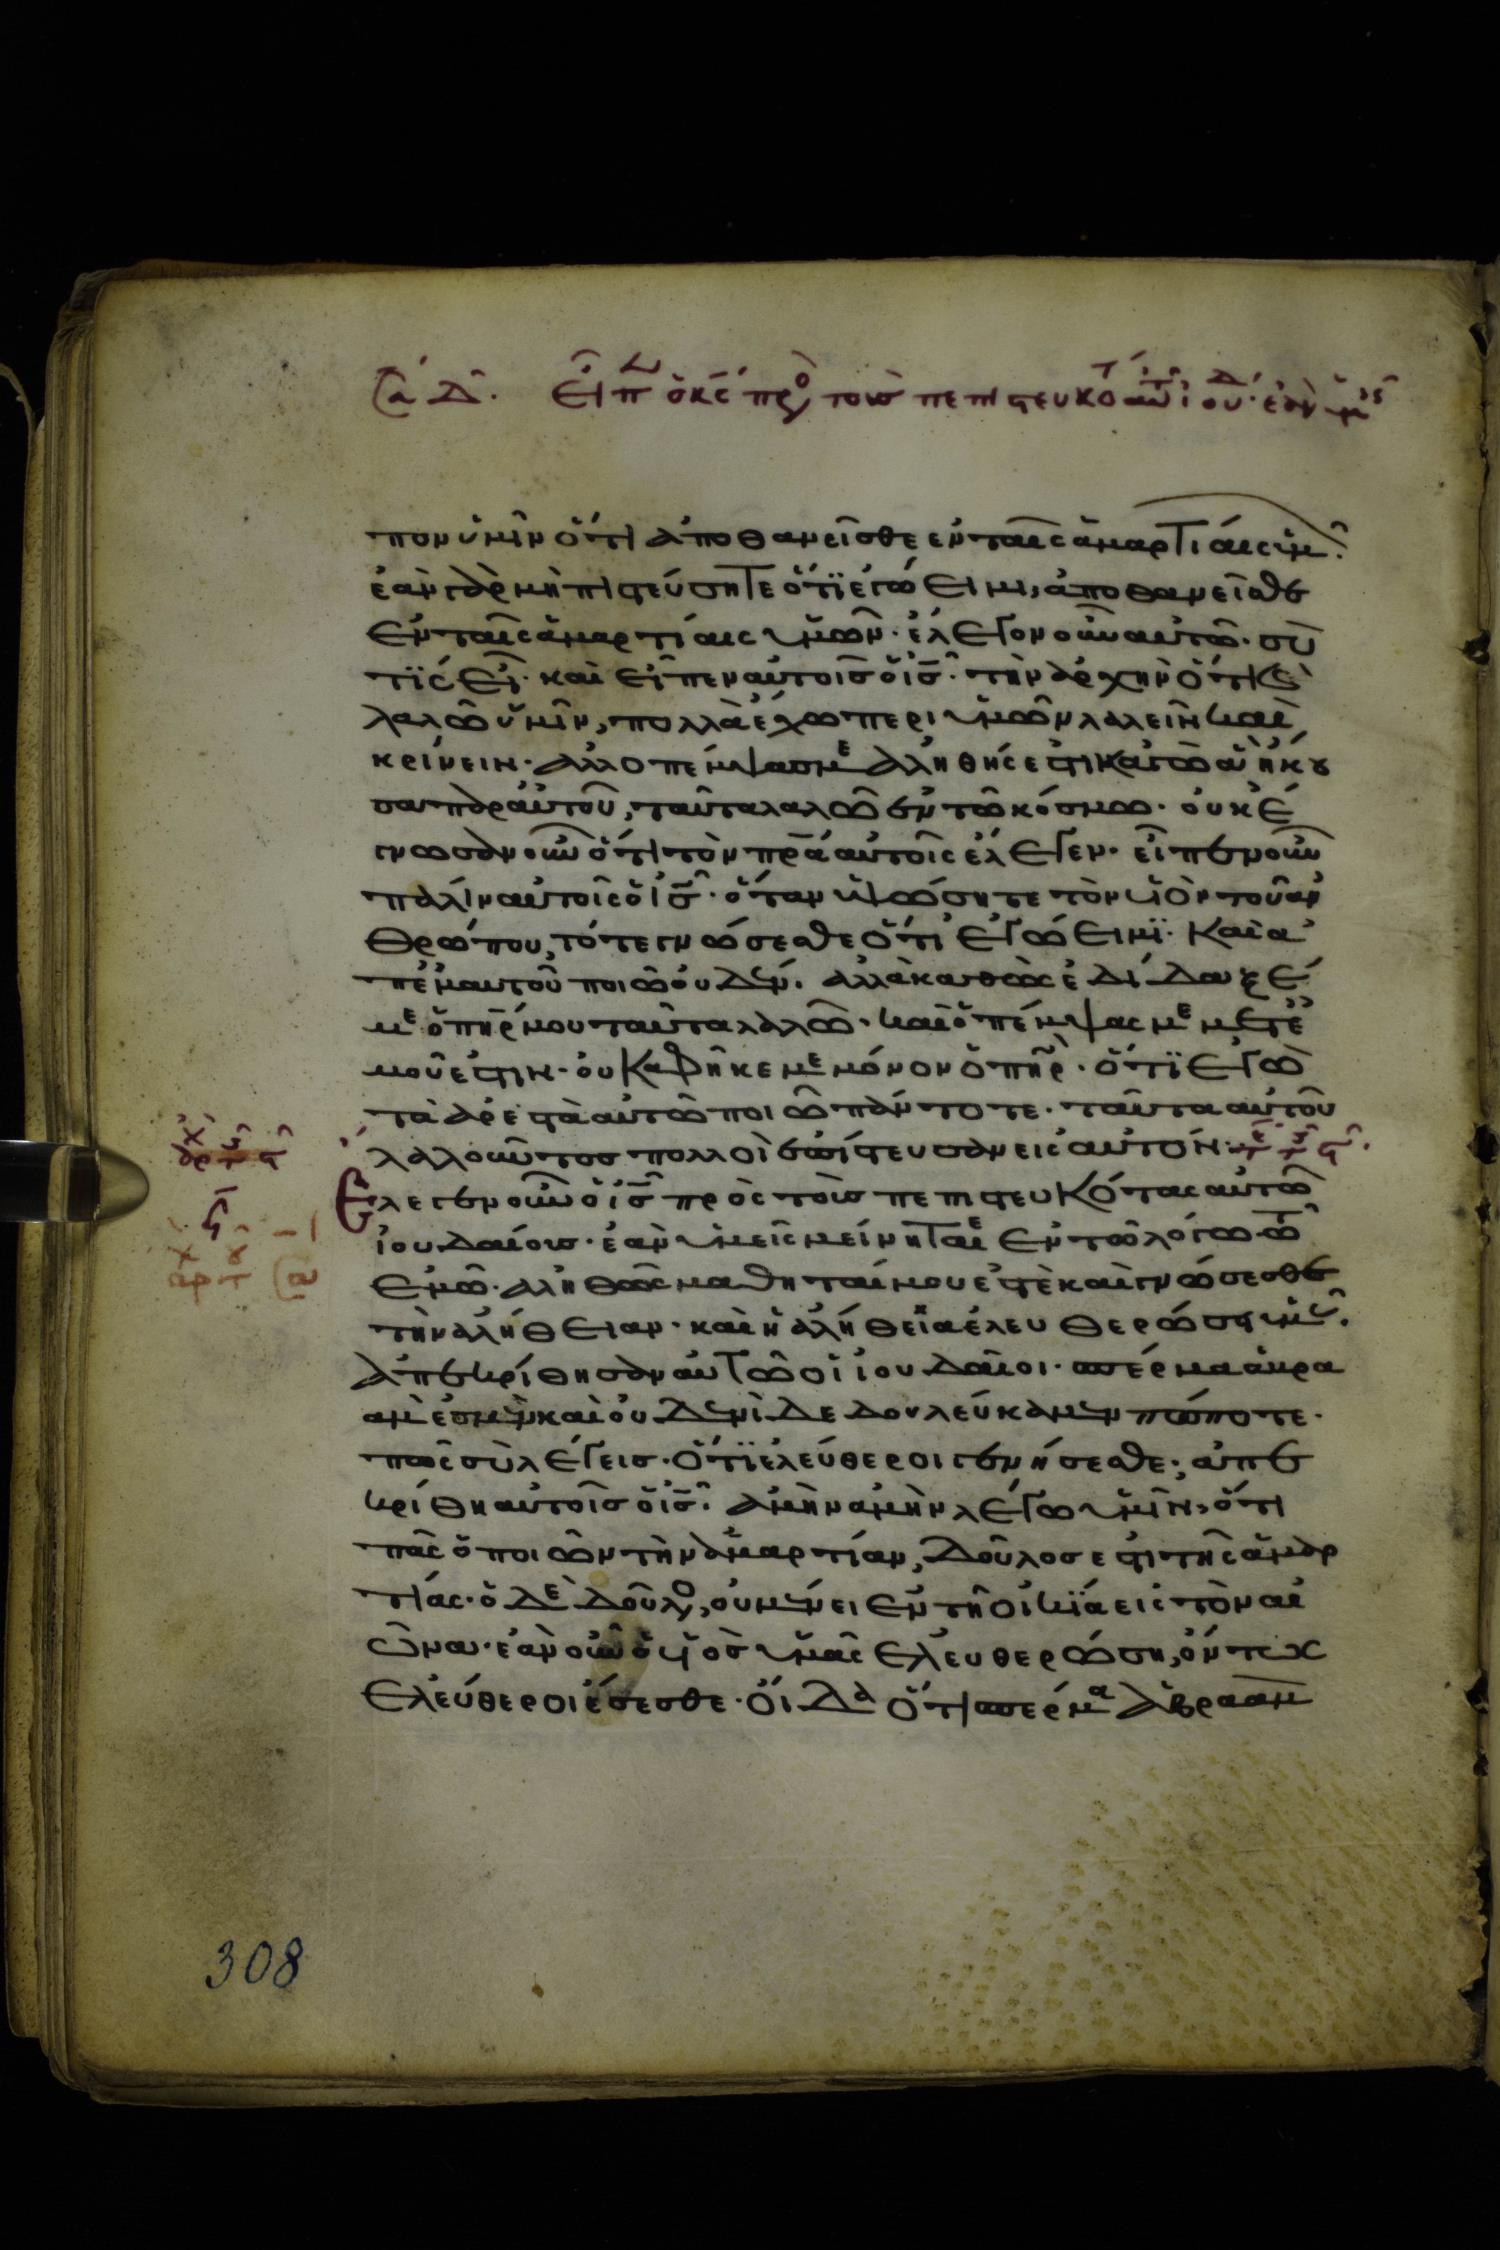 πον ὑμῖν ὅτι ἀποθανεῖσθε ἐν ταῖς ἁμαρτίαις ὑμ
ἐὰν γὰρ μὴ πιστεύσητε ὅτι ἐγώ εἰμι, ἀποθανεῖσθε
ἐν ταῖς ἁμαρτίαις ὑμῶν· ἔλεγον οὖν αὐτῷ· σὺ
τίς εἶ· καὶ εἶπεν αὐτοῖς ὁ ις· τὴν ἀρχὴν ὅτι καὶ
λαλῶ ὑμῖν, πολλὰ ἔχω περὶ ὑμῶν λαλεῖν καὶ
κρίνειν· ἀλλ ὁ πέμψας με ἀληθής ἐστιν κἀγὼ ἃ ἤκου
σα παρ αὐτοῦ, ταῦτα λαλῶ ἐν τῷ κόσμῳ· οὐκ ἔ
γνωσαν οὖν ὅτι τὸν πρα αὐτοῖς ἔλεγεν· εἶπεν οὖν
πάλιν αὐτοῖς ὁ ις· ὅταν ὑψώσητε τὸν υἱὸν τοῦ ἀν
θρώπου, τότε γνώσεσθε ὅτι ἐγώ εἰμι· καὶ ἀ
π ἐμαυτοῦ ποιῶ οὐδέν· ἀλλὰ καθὼς ἐδίδαξέ
με ὁ πηρ μου ταῦτα λαλῶ· καὶ ὁ πέμψας με μετ ἐ
μοῦ ἐστιν· οὐκ ἀφῆκε με μόνον ὁ πηρ· ὅτι ἐγὼ
τὰ ἀρεστὰ αὐτῷ ποιῶ πάντοτε· ταῦτα αὐτοῦ
λαλοῦντος πολλοὶ ἐπίστευσαν εἰς αὐτόν·
Ελεγεν οὖν ὁ ις πρὸς τοὺς πεπιστευκότας αὐτῷ
ἰουδαίους· ἐὰν ὑμεῖς μείνηται ἐν τῷ λόγῳ τῷ
ἐμῷ· ἀληθῶς μαθηταί μου ἐστὲ καὶ γνώσεσθε
τὴν ἀλήθειαν· καὶ ἡ ἀλήθεια ἐλευθερώσει ὑμ
ἀπεκρίθησαν αὐτῷ οἱ ἰουδαῖοι· σπέρμα ἀβρα
ὰμ ἐσμὲν καὶ οὐδενὶ δεδουλεύκαμεν πώποτε·
πῶς σὺ λέγεις· ὅτι ἐλεύθεροι γενήσεσθε· ἀπε
κρίθη αὐτοῖς ὁ ις· ἀμὴν ἀμὴν λέγω ὑμῖν, ὅτι
πᾶς ὁ ποιῶν τὴν ἁμαρτίαν, δοῦλος ἐστι τῆς ἁμαρ
τίας· ὁ δὲ δοῦλος, οὐ μένει ἐν τῇ οἰκίᾳ εἰς τὸν αἰ
ῶνα· ἐὰν οὖν ὁ υἱὸς ὑμᾶς ἐλευθερώσῃ, ὄντως
ἐλεύθεροι ἔσεσθε· οἶδα ὅτι σπέρμα ἀβραάμ
308